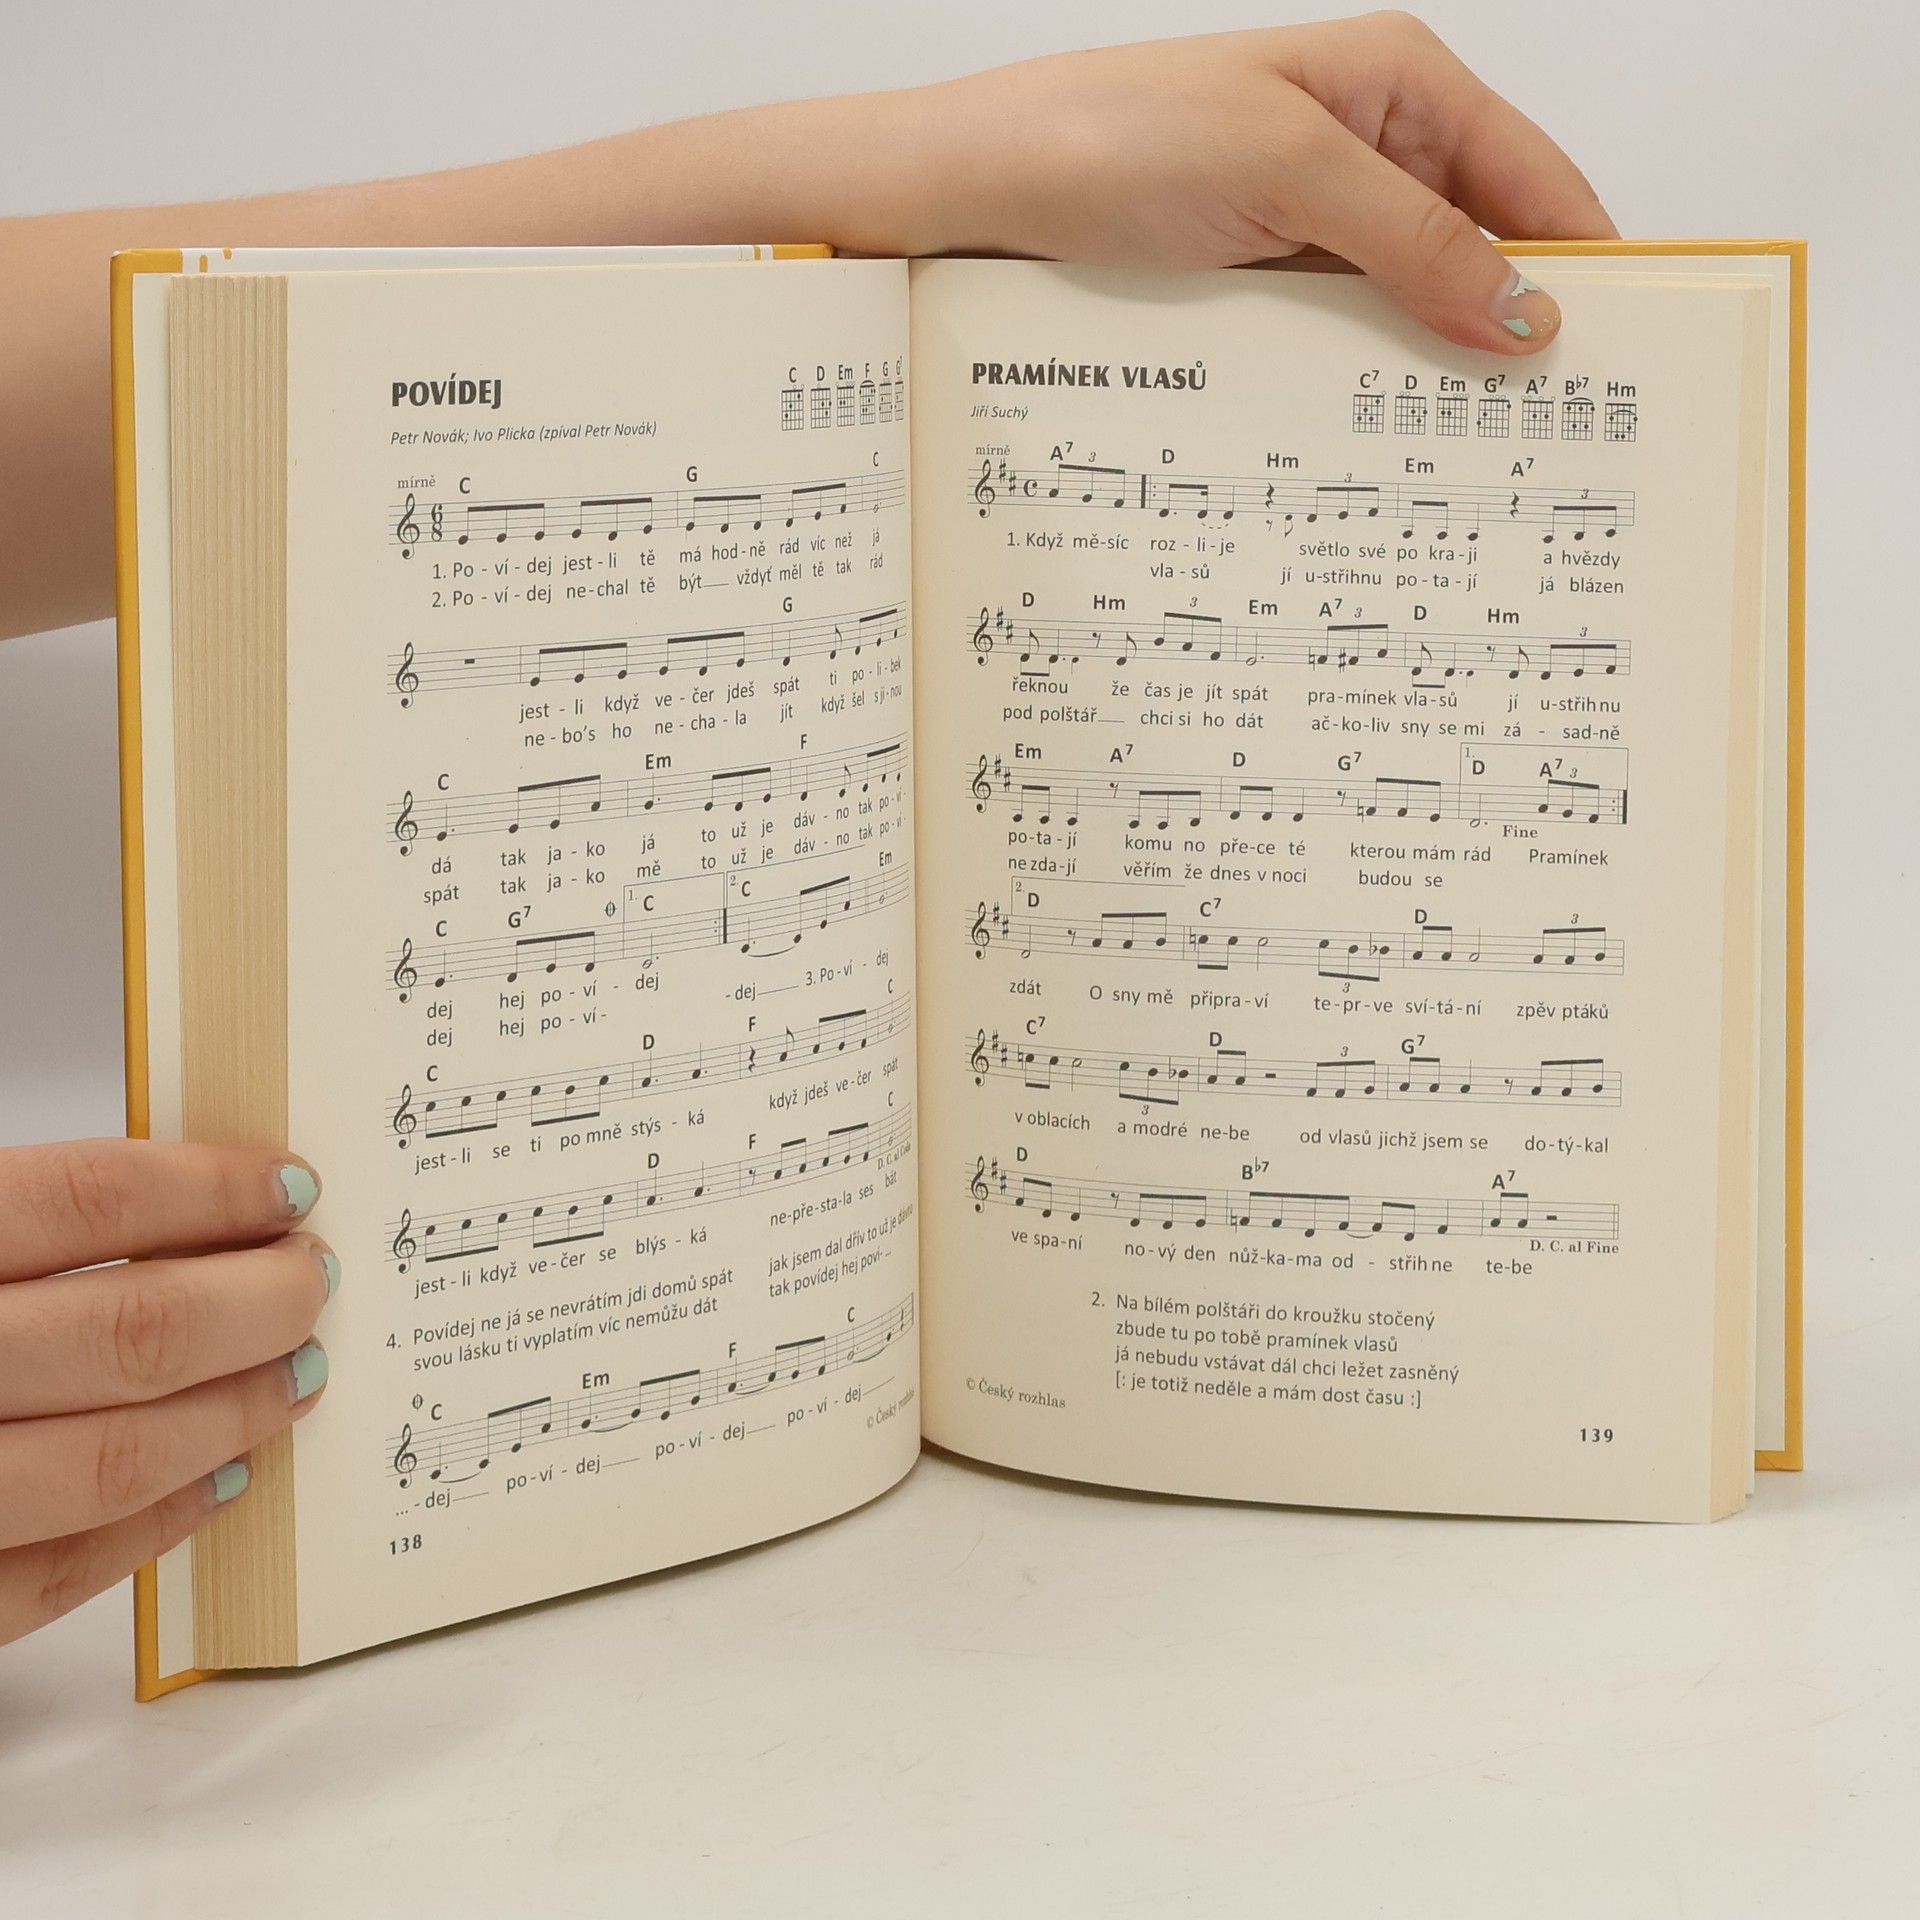 POVÍDEJ
C D Em F G G7
Petr Novák; Ivo Plicka (zpíval Petr Novák)
mírně
C G C
1. Po - ví - dej jest - li tě má hod - ně rád víc než já
2. Po - ví - dej ne - chal tě být___ vždyť měl tě tak rád
G
jest - li když ve - čer jdeš spát ti po - li - bek
ne - bo's ho ne - cha - la jít když šel s ji - nou
C Em F
dá tak ja - ko já to už je dáv - no tak po - ví -
spát tak ja - ko mě to už je dáv - no tak po - ví -
C G7 1. C 2. C Em
dej hej po - ví - dej - dej___ 3. Po - ví - dej
dej hej po - ví -
C D F C
jest - li se ti po mně stýs - ká když jdeš ve - čer spát
D F C
D. C. al Coda
jest - li když ve - čer se blýs - ká ne - pře - sta - la ses bát
4. Povídej ne já se nevrátím jdi domů spát jak jsem dal dřív to už je dávno
svou lásku ti vyplatím víc nemůžu dát tak povídej hej poví- ...
C Em F C
... - dej___ po - ví - dej___ po - ví - dej___ po - ví - dej___
© Český rozhlas
138
PRAMÍNEK VLASŮ
C7 D Em G7 A7 B♭7 Hm
Jiří Suchý
mírně
A7 3 D Hm 3 Em A7 3
1. Když mě - síc roz - li - je světlo své po kra - ji a hvězdy
vla - sů jí u - střihnu po - ta - jí já blázen
D Hm 3 Em A7 3 D Hm 3
řeknou že čas je jít spát pra - mínek vla - sů jí u - střihnu
pod polštář___ chci si ho dát ač - ko - liv sny se mi zá - sad - ně
Em A7 D G7 1. D A7 3
Fine
po - ta - jí komu no pře - ce té kterou mám rád Pramínek
ne zda - jí věřím že dnes v noci budou se
2. D C7 3 D 3
zdát O sny mě připra - ví te - pr - ve sví - tá - ní zpěv ptáků
C7 3 D 3 G7
v oblacích a modré ne - be od vlasů jichž jsem se do - tý - kal
D B♭7 A7
D. C. al Fine
ve spa - ní no - vý den nůž - ka - ma od - střih ne te - be
2. Na bílém polštáři do kroužku stočený
zbude tu po tobě pramínek vlasů
já nebudu vstávat dál chci ležet zasněný
[: je totiž neděle a mám dost času :]
© Český rozhlas
139